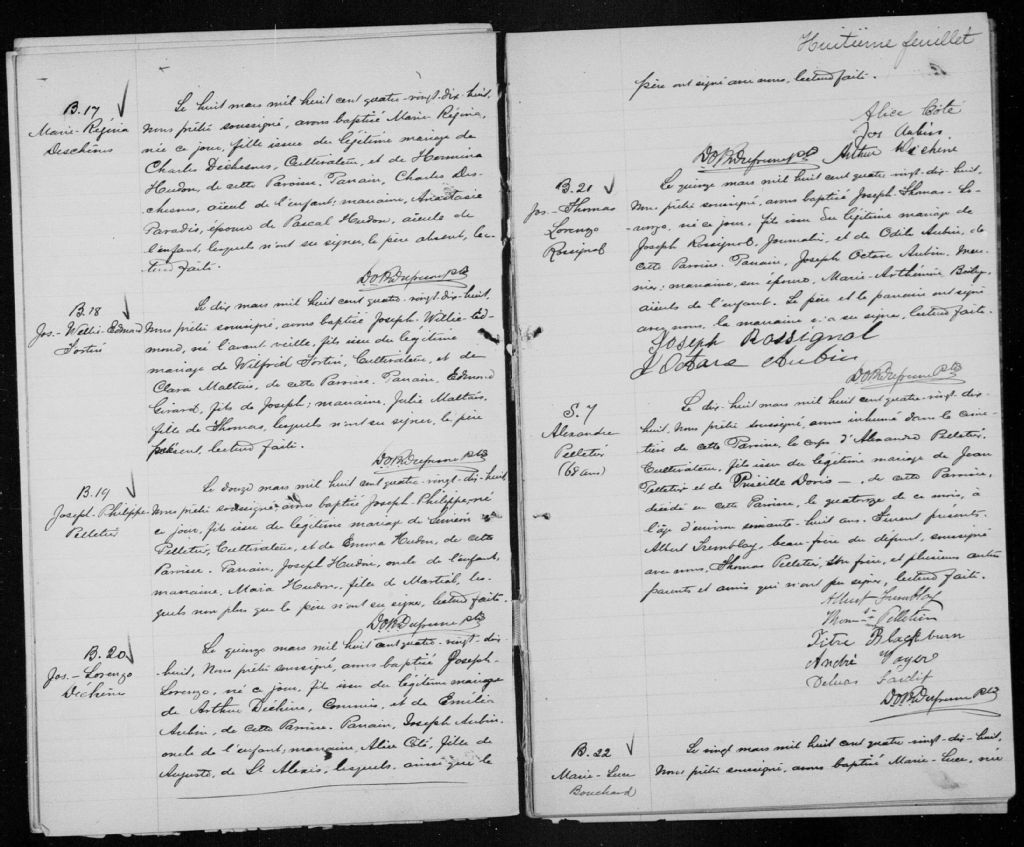 B.17
Marie-Régina
Deschênes
Le huit mars mil huit cent quatre-vingt-dix-huit,
Nous prêtre soussigné, avons baptisé Marie Régina,
née ce jour, fille issue du légitime mariage de
Charles Deschesnes, Cultivateur, et de Hermina
Hudon, de cette Paroisse. Parrain, Charles Des-
chesnes, aïeul de l'enfant; marraine, Anastasie
Paradis, épouse de Pascal Hudon, aïeule de
l'enfant, lesquels n'ont su signer, le père absent, lec-
ture faite.
B.18
Jos-Willie-Edmond
Fortin
Le dix mars mil huit cent quatre-vingt-dix-huit,
Nous prêtre soussigné, avons baptisé Joseph-Willie-Ed-
mond, né l'avant veille, fils issu du légitime
mariage de Wilfrid Fortin, Cultivateur, et de
Clara Maltais, de cette Paroisse. Parrain, Edmond
Girard, fils de Joseph; marraine, Julie Maltais,
fille de Thomas, lesquels n'ont su signer, le père
présent, lecture faite.
B.19
Joseph-Philippe
Pelletier
Le douze mars mil huit cent quatre-vingt-dix-huit,
Nous prêtre soussigné avons baptisé Joseph-Philippe, né
ce jour, fils issu du légitime mariage de
Pelletier, Cultivateur, et de Emma Hudon, de cette
Paroisse. Parrain, Joseph Hudon, oncle de l'enfant,
marraine, Maria Hudon, fille de Martial, les-
quels non plus que le père n'ont su signer, lecture faite.
B.20
Jos.-Lorenzo
Déchêne
Le quinze mars mil huit cent quatre-vingt-dix-
huit, Nous prêtre soussigné, avons baptisé Joseph-
Lorenzo, né ce jour, fils issu du légitime mariage
de Arthur Déchêne, Commis, et de Emélia
Aubin, de cette Paroisse. Parrain, Joseph Aubin,
oncle de l'enfant; marraine, Alice Côté, fille de
Auguste, de St Alexis, lesquels, ainsi que le
Huitième feuillet
père ont signé avec nous, lecture faite.
Alice Côté
Jos Aubin
Arthur Dechêne
B.21
Jos-Thomas
Lorenzo
Rossignol
Le quinze mars mil huit cent quatre-vingt-dix-huit,
Nous prêtre soussigné, avons baptisé Joseph-Thomas-Lo-
renzo, né ce jour, fils issu du légitime mariage de
Joseph Rossignol, Journalier, et de Odile Aubin, de
cette Paroisse. Parrain, Joseph Octave Aubin, Meu-
nier; marraine, son épouse, Marie-Arthémise Boily,
aïeuls de l'enfant. Le père et le parrain ont signé
avec nous, la marraine n'a su signer, lecture faite.
Joseph Rossignol
J Octave Aubin
S.7
Alexandre
Pelletier
(68 ans)
Le dix-huit mars mil huit cent quatre-vingt-dix-
huit, Nous prêtre soussigné, avons inhumé dans le cime-
tière de cette Paroisse, le corps d'Alexandre Pelletier,
Cultivateur, fils issu du légitime mariage de Jean
Pelletier et de Priscille Doris, de cette Paroisse,
décédé en cette Paroisse, le quatorze de ce mois, à
l'âge d'environ soixante-huit ans. Furent présents,
Albert Tremblay, beau-frère du défunt, soussigné
avec nous, Thomas Pelletier, son frère, et plusieurs autres
parents et amis qui n'ont pu signer, lecture faite.
Albert Tremblay
Thomas Pelletier
Titre Blackburn
André Voyer
B.22
Marie-Luce
Bouchard
Le vingt mars mil huit cent quatre-vingt-dix-huit,
Nous prêtre soussigné, avons baptisé Marie-Luce, née